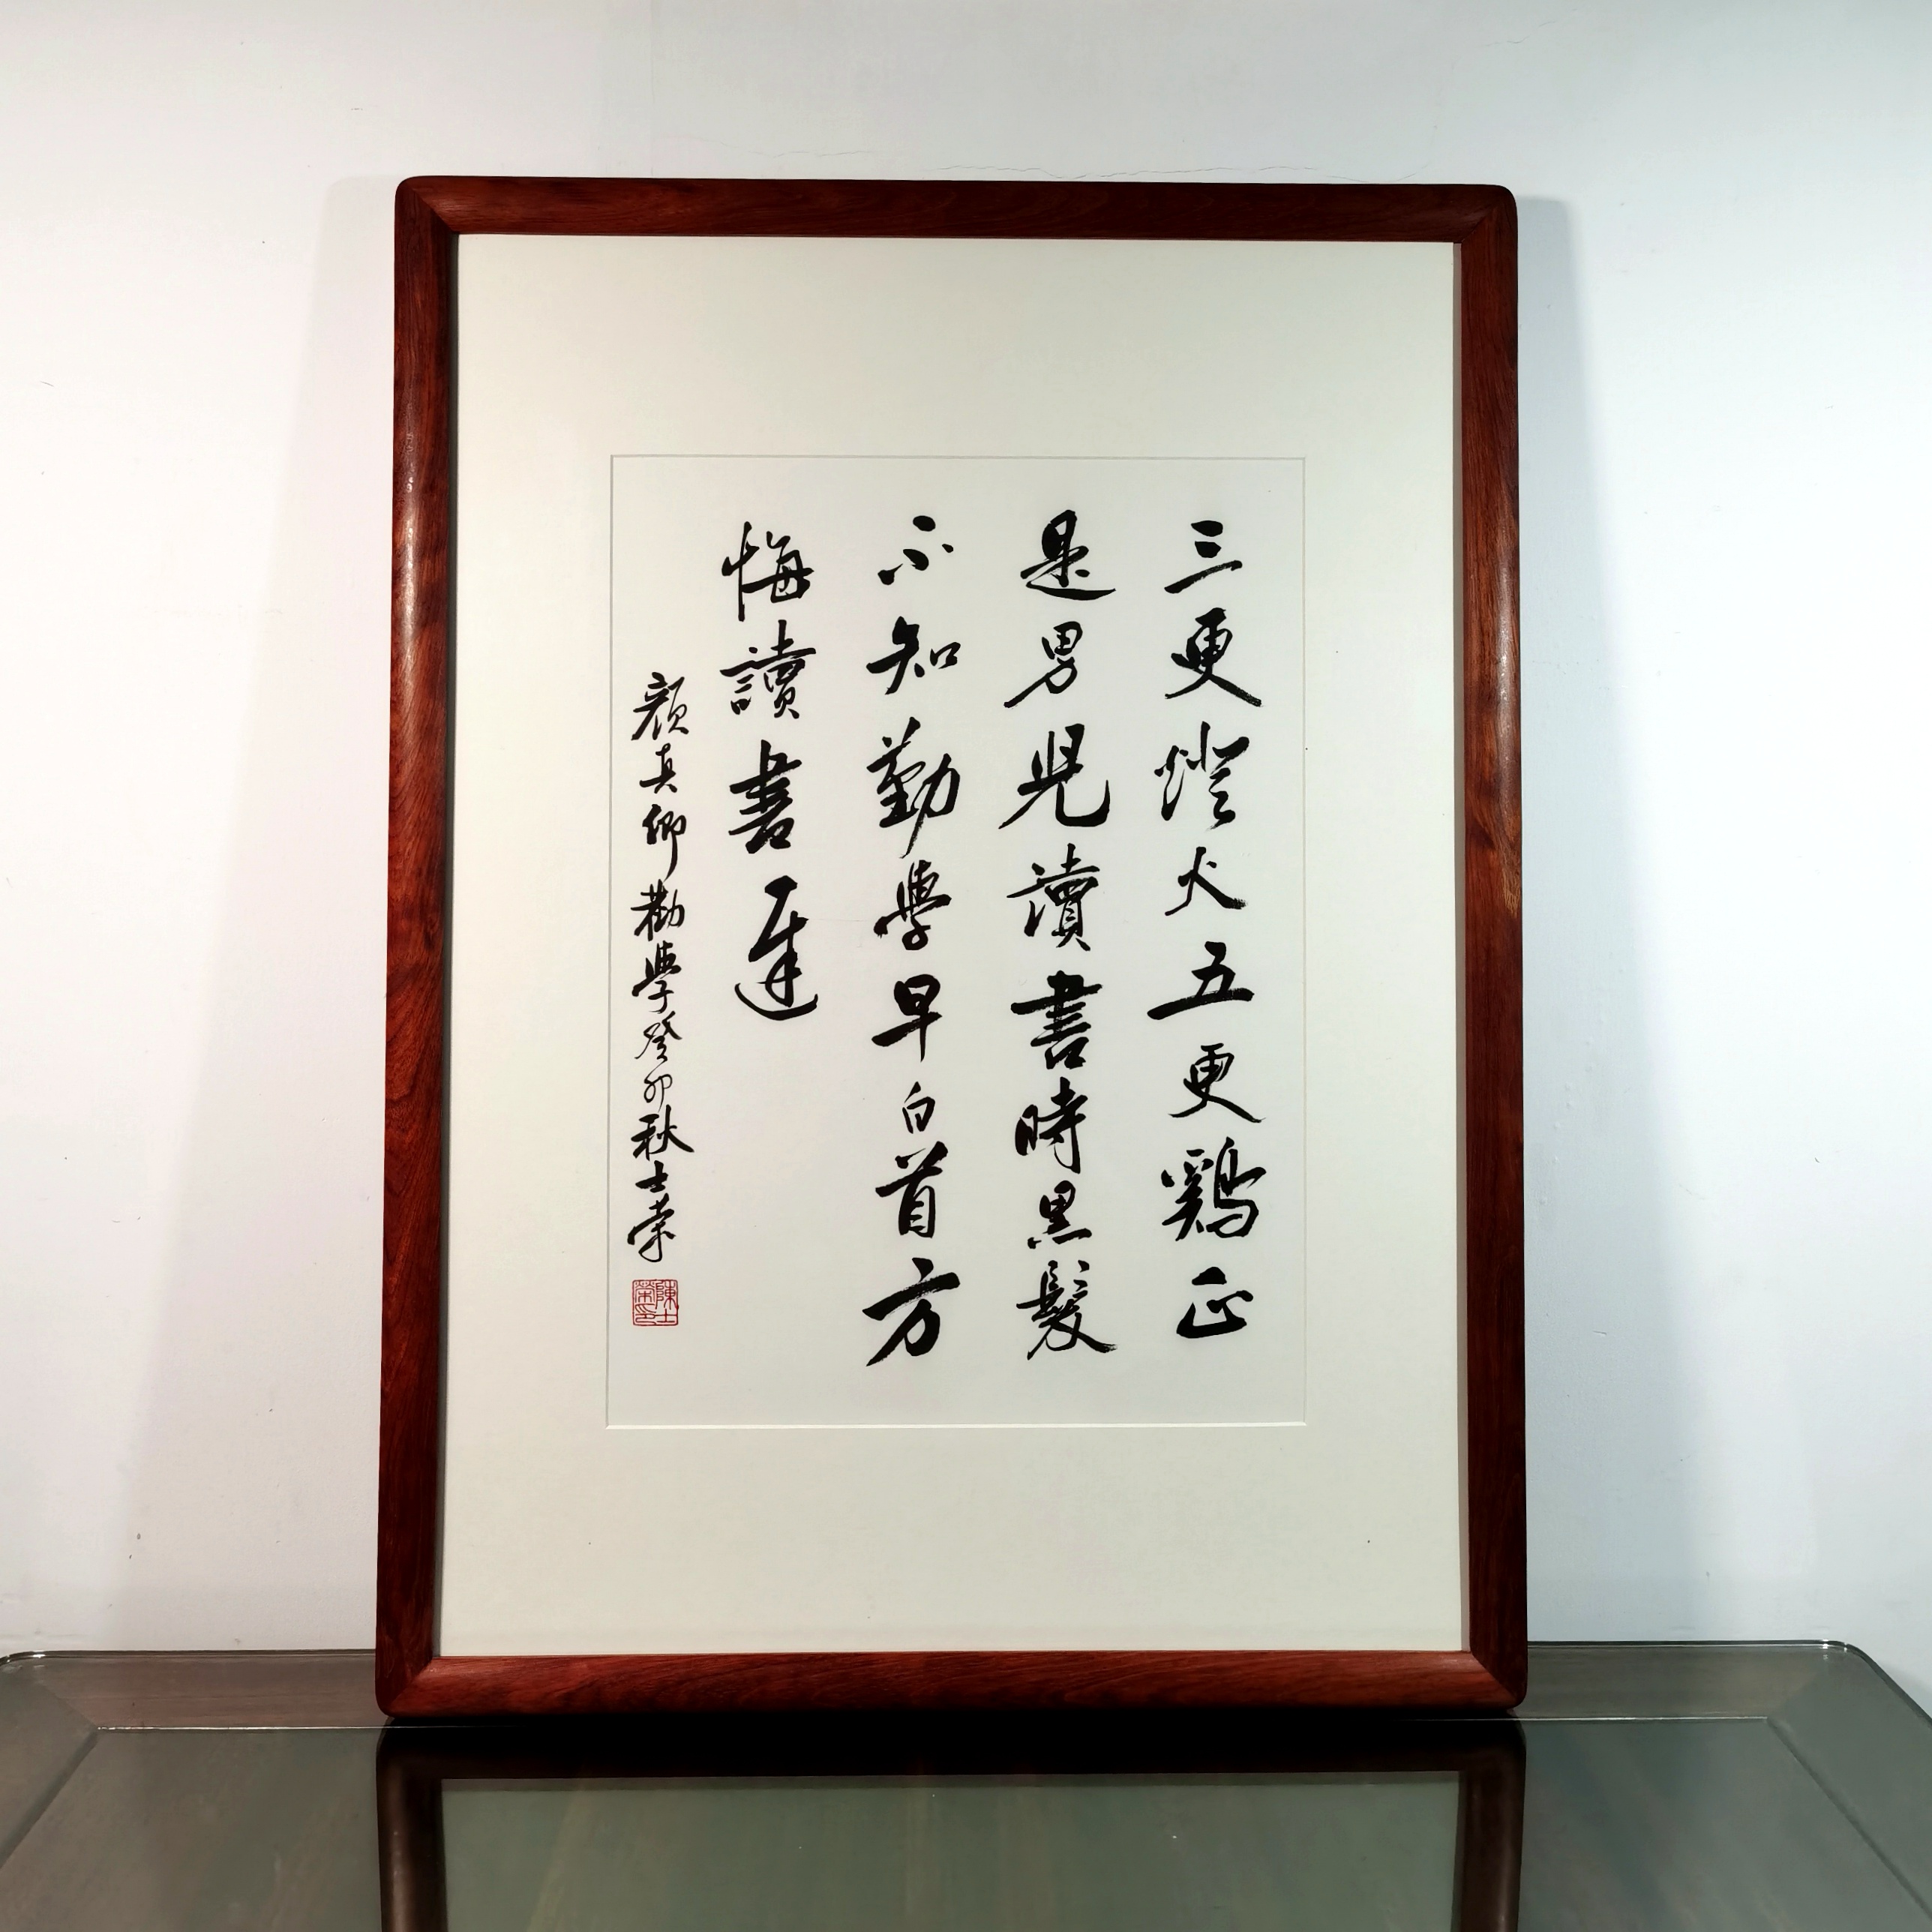 三更燈火五更鷄正
是男兒讀書時黑髮
不知勤學早白首方
悔讀書遲
顏真卿勸學癸卯秋士榮
陳士榮印